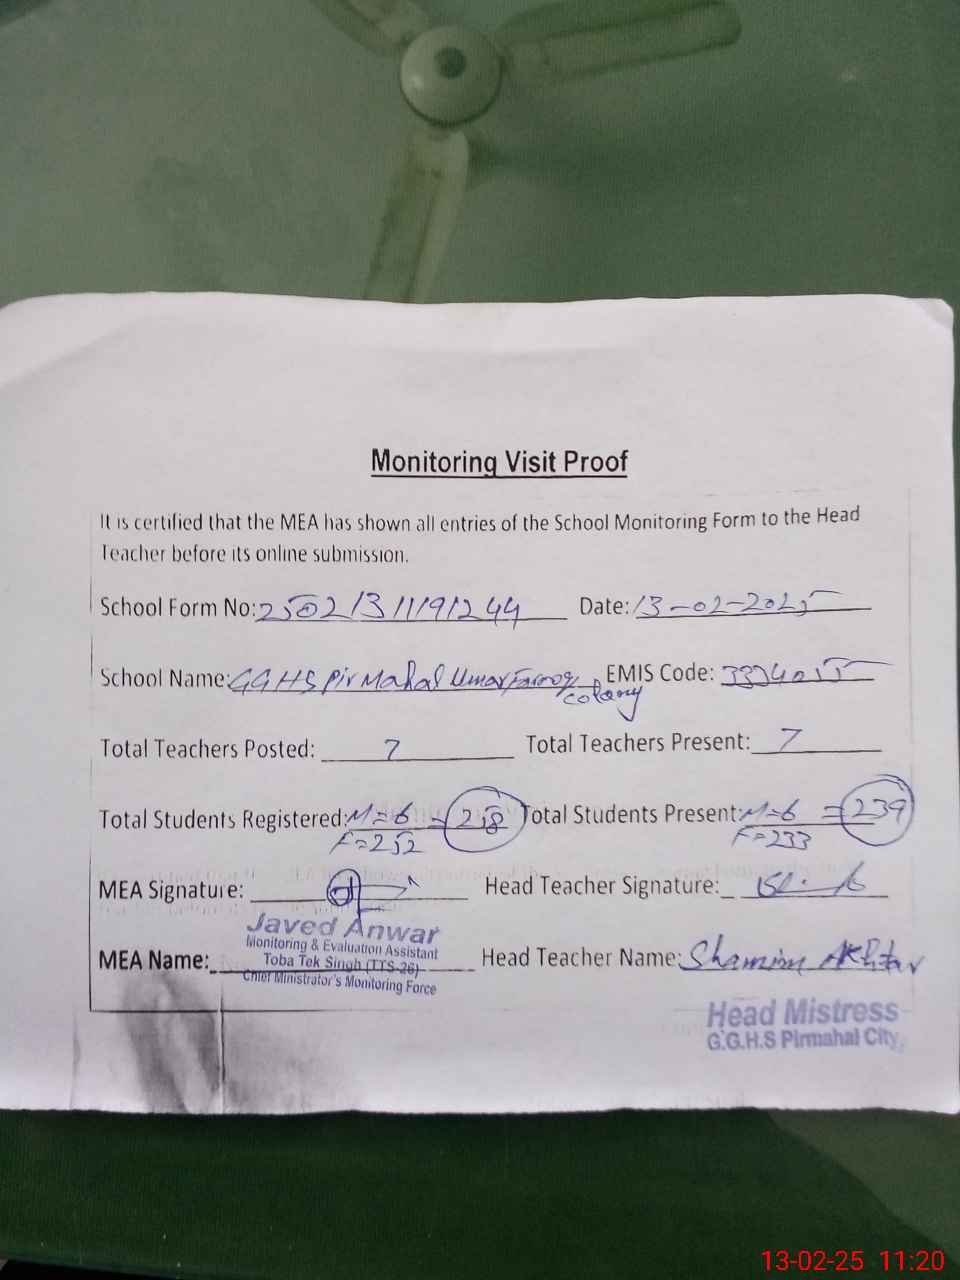 Monitoring Visit Proof
It is certified that the MEA has shown all entries of the School Monitoring Form to the Head
Teacher before its online submission.
School Form No: 25021311191244 Date: 13-02-2025
School Name: GGHS Pir Mahal Umar Farooq colony EMIS Code: 33340155
Total Teachers Posted: 7 Total Teachers Present: 7
Total Students Registered: M=6 = 258 Total Students Present: M=6 = 239
F=252 F=233
MEA Signature: Head Teacher Signature:
Javed Anwar
Monitoring & Evaluation Assistant
MEA Name: Toba Tek Singh (TTS-26) Head Teacher Name: Shamim Akhtar
Chief Minister's Monitoring Force
Head Mistress
G.G.H.S Pirmahal City
13-02-25 11:20